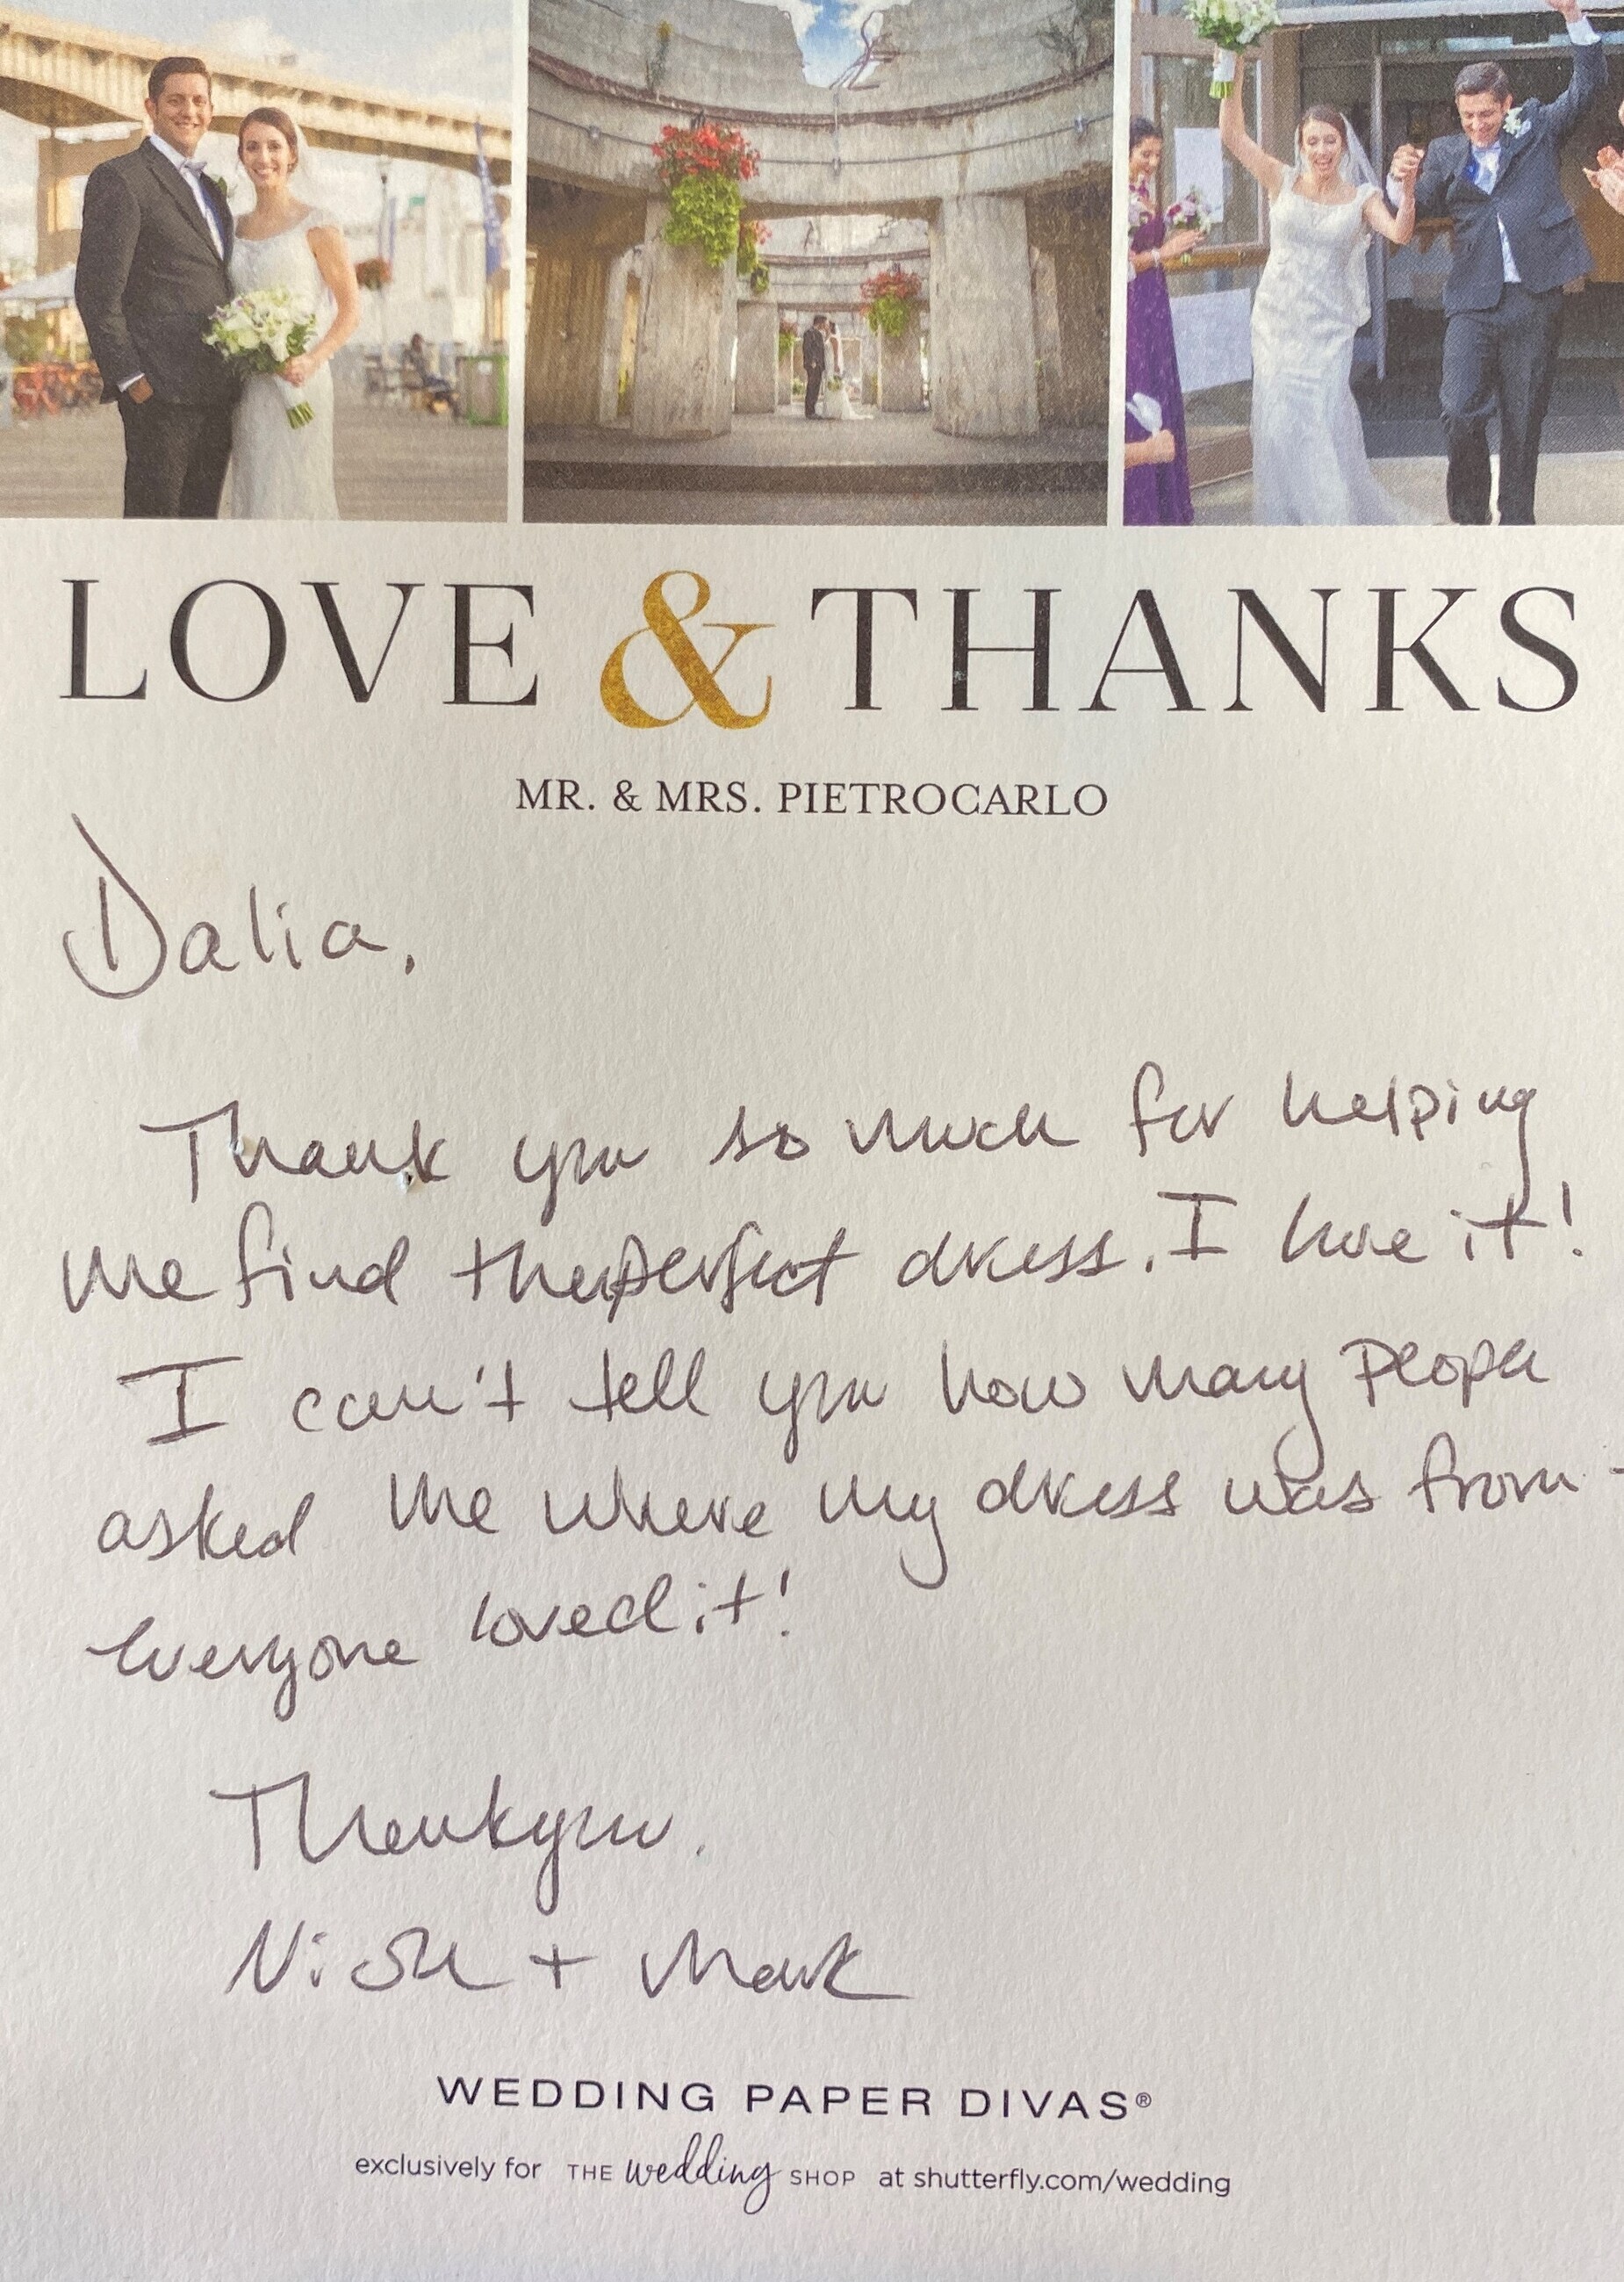 LOVE & THANKS
MR. & MRS. PIETROCARLO
Dalia,
Thank you so much for helping
me find the perfect dress. I love it!
I can't tell you how many people
asked me where my dress was from -
everyone loved it!
Thank you.
Nicole + Mark
WEDDING PAPER DIVAS®
exclusively for THE wedding SHOP at shutterfly.com/wedding